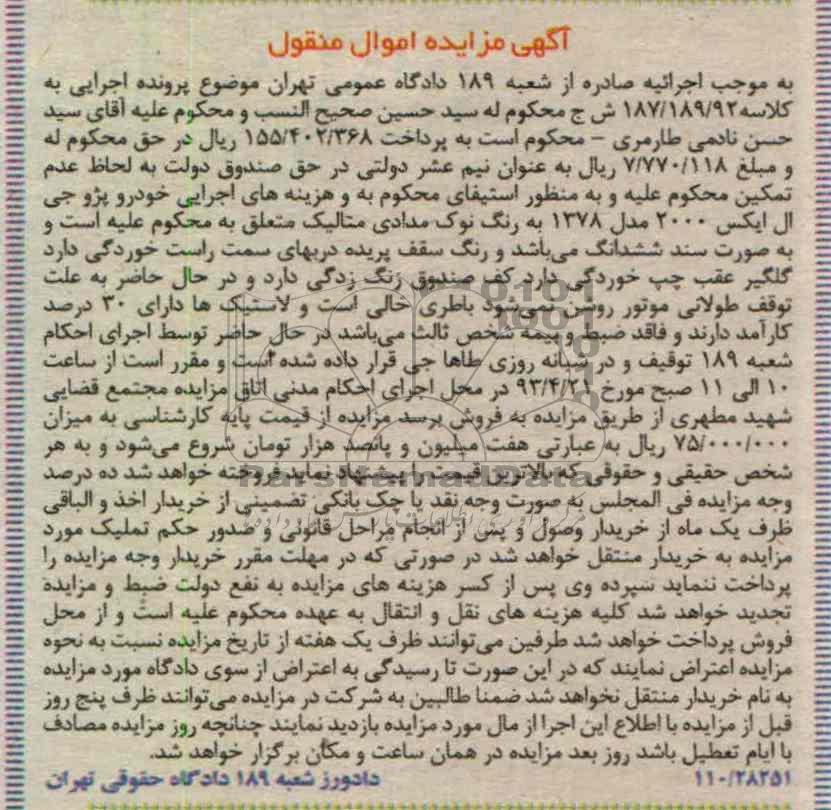 آگهی مزایده اموال منقول
به موجب اجرائیه صادره از شعبه ۱۸۹ دادگاه عمومی تهران موضوع پرونده اجرایی به
کلاسه۱۸۷/۱۸۹/۹۲ ش ج محکوم له سید حسین صحیح النسب و محکوم علیه آقای سید
حسن نادمی طارمری – محکوم است به پرداخت ۱۵۵/۴۰۲/۳۶۸ ریال در حق محکوم له
و مبلغ ۷/۷۷۰/۱۱۸ ریال به عنوان نیم عشر دولتی در حق صندوق دولت به لحاظ عدم
تمکین محکوم علیه و به منظور استیفای محکوم به و هزینه های اجرایی خودرو پژو جی
ال ایکس ۲۰۰۰ مدل ۱۳۷۸ به رنگ نوک مدادی متالیک متعلق به محکوم علیه است و
به صورت سند ششدانگ می‌باشد و رنگ سقف پریده دربهای سمت راست خوردگی دارد
گلگیر عقب چپ خوردگی دارد کف صندوق زنگ زدگی دارد و در حال حاضر به علت
توقف طولانی موتور روشن نمی‌شود باطری خالی است و لاستیک ها دارای ۳۰ درصد
کارآمد دارند و فاقد ضبط و بیمه شخص ثالث می‌باشد در حال حاضر توسط اجرای احکام
شعبه ۱۸۹ توقیف و در شبانه روزی طاها جی قرار داده شده است و مقرر است از ساعت
۱۰ الی ۱۱ صبح مورخ ۹۳/۴/۲۱ در محل اجرای احکام مدنی اتاق مزایده مجتمع قضایی
شهید مطهری از طریق مزایده به فروش برسد مزایده از قیمت پایه کارشناسی به میزان
۷۵/۰۰۰/۰۰۰ ریال به عبارتی هفت میلیون و پانصد هزار تومان شروع می‌شود و به هر
شخص حقیقی و حقوقی که بالاترین قیمت را پیشنهاد نماید فروخته خواهد شد ده درصد
وجه مزایده فی المجلس به صورت وجه نقد یا چک بانکی تضمینی از خریدار اخذ و الباقی
ظرف یک ماه از خریدار وصول و پس از انجام مراحل قانونی و صدور حکم تملیک مورد
مزایده به خریدار منتقل خواهد شد در صورتی که در مهلت مقرر خریدار وجه مزایده را
پرداخت ننماید سپرده وی پس از کسر هزینه های مزایده به نفع دولت ضبط و مزایده
تجدید خواهد شد کلیه هزینه های نقل و انتقال به عهده محکوم علیه است و از محل
فروش پرداخت خواهد شد طرفین می‌توانند ظرف یک هفته از تاریخ مزایده نسبت به نحوه
مزایده اعتراض نمایند که در این صورت تا رسیدگی به اعتراض از سوی دادگاه مورد مزایده
به نام خریدار منتقل نخواهد شد ضمنا طالبین به شرکت در مزایده می‌توانند ظرف پنج روز
قبل از مزایده با اطلاع این اجرا از مال مورد مزایده بازدید نمایند چنانچه روز مزایده مصادف
با ایام تعطیل باشد روز بعد مزایده در همان ساعت و مکان برگزار خواهد شد.
۱۱۰/۲۸۲۵۱ دادورز شعبه ۱۸۹ دادگاه حقوقی تهران
ParsNamadData